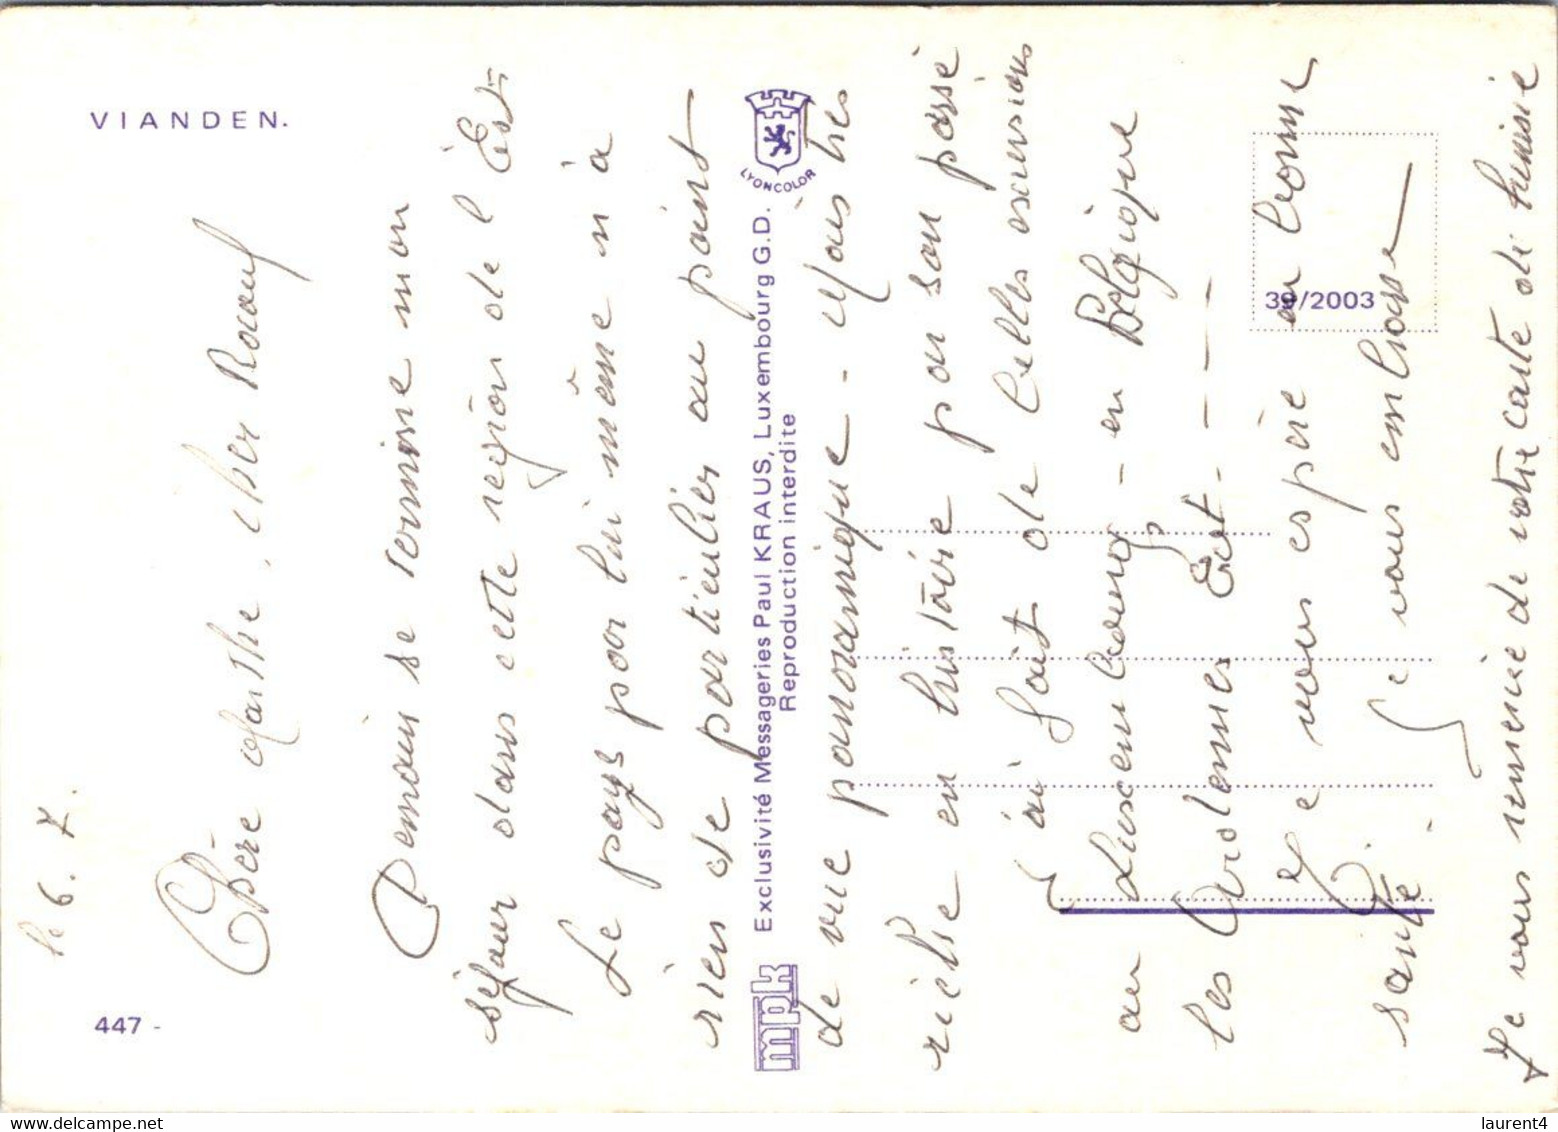 VIANDEN.
447 -
le 6. 7.
Chère Marthe, cher
Demain se termine mon
séjour dans cette région de l'Est
Le pays par lui même n'a
rien de particulier au point
de vue panoramique - Mais très
riche en histoire par son passé
ai fait de belles excursions
au Luxembourg - en Belgique
les Ardennes Est - - - -
Je vous espère en bonne
santé. Je vous embrasse
Je vous remercie de votre carte de Tunisie
mpk Exclusivité Messageries Paul KRAUS, Luxembourg G.D.
Reproduction interdite
LYONCOLOR
39/2003
laurent4